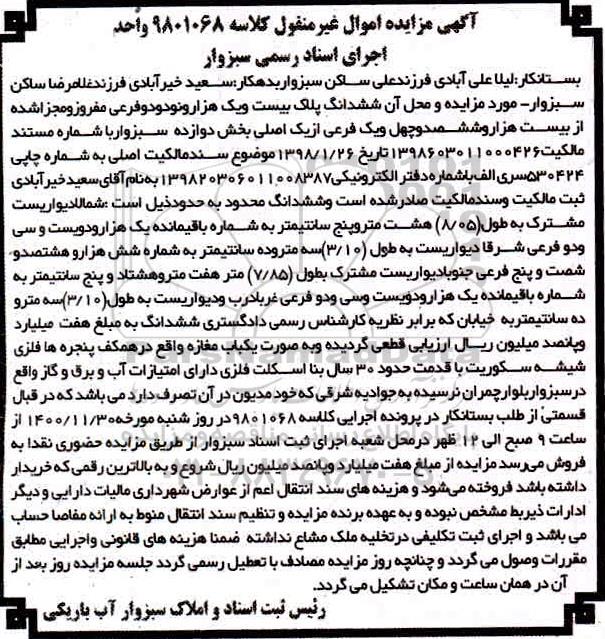 آگهی مزایده اموال غیرمنقول کلاسه ۹۸۰۱۰۶۸ واحد
اجرای اسناد رسمی سبزوار
بستانکار:لیلا علی آبادی فرزندعلی ساکن سبزواربدهکار:سعید خیرآبادی فرزندغلامرضا ساکن
سبزوار- مورد مزایده و محل آن ششدانگ پلاک بیست ویک هزارونودودوفرعی مفروزومجزاشده
از بیست هزاروششصدوچهل ویک فرعی ازیک اصلی بخش دوازده سبزواربا شماره مستند
مالکیت۱۳۹۸۶۰۳۰۱۱۰۰۰۴۲۶ تاریخ ۱۳۹۸/۱/۲۶موضوع سندمالکیت اصلی به شماره چاپی
۵۳۰۴۲۴سری الف باشماره دفتر الکترونیکی۱۳۹۸۲۰۳۰۶۰۱۱۰۰۸۳۸۷به نام آقای سعیدخیرآبادی
ثبت مالکیت وسندمالکیت صادرشده است وششدانگ محدود به حدودذیل است :شمالادیواریست
مشترک به طول(۸/۰۵) هشت متروپنج سانتیمتر به شماره باقیمانده یک هزارودویست و سی
ودو فرعی شرقا دیواریست به طول (۳/۱۰)سه متروده سانتیمتر به شماره شش هزارو هشتصدو
شصت و پنج فرعی جنوبادیواریست مشترک بطول (۷/۸۵) متر هفت متروهشتاد و پنج سانتیمتر به
شماره باقیمانده یک هزارودویست وسی ودو فرعی غربادرب ودیواریست به طول(۳/۱۰)سه مترو
ده سانتیمتربه خیابان که برابر نظریه کارشناس رسمی دادگستری ششدانگ به مبلغ هفت میلیارد
وپانصد میلیون ریال ارزیابی قطعی گردیده وبه صورت یکباب مغازه واقع درهمکف پنجره ها فلزی
شیشه سکوریت با قدمت حدود ۳۰ سال بنا اسکلت فلزی دارای امتیازات آب و برق و گاز واقع
درسبزواربلوارچمران نرسیده به جوادیه شرقی که خودمدیون در آن تصرف دارد می باشد که در قبال
قسمتی از طلب بستانکار در پرونده اجرایی کلاسه ۹۸۰۱۰۶۸در روز شنبه مورخه۱۴۰۰/۱۱/۳۰ از
ساعت ۹ صبح الی ۱۲ ظهر درمحل شعبه اجرای ثبت اسناد سبزوار از طریق مزایده حضوری نقدا به
فروش می‌رسد مزایده از مبلغ هفت میلیارد وپانصد میلیون ریال شروع و به بالاترین رقمی که خریدار
داشته باشد فروخته می‌شود و هزینه های سند انتقال اعم از عوارض شهرداری مالیات دارایی و دیگر
ادارات ذیربط مشخص نبوده و به عهده برنده مزایده و تنظیم سند انتقال منوط به ارائه مفاصا حساب
می باشد و اجرای ثبت تکلیفی درتخلیه ملک مشاع نداشته ضمنا هزینه های قانونی واجرایی مطابق
مقررات وصول می گردد و چنانچه روز مزایده مصادف با تعطیل رسمی گردد جلسه مزایده روز بعد از
آن در همان ساعت و مکان تشکیل می گردد.
رئیس ثبت اسناد و املاک سبزوار آب باریکی